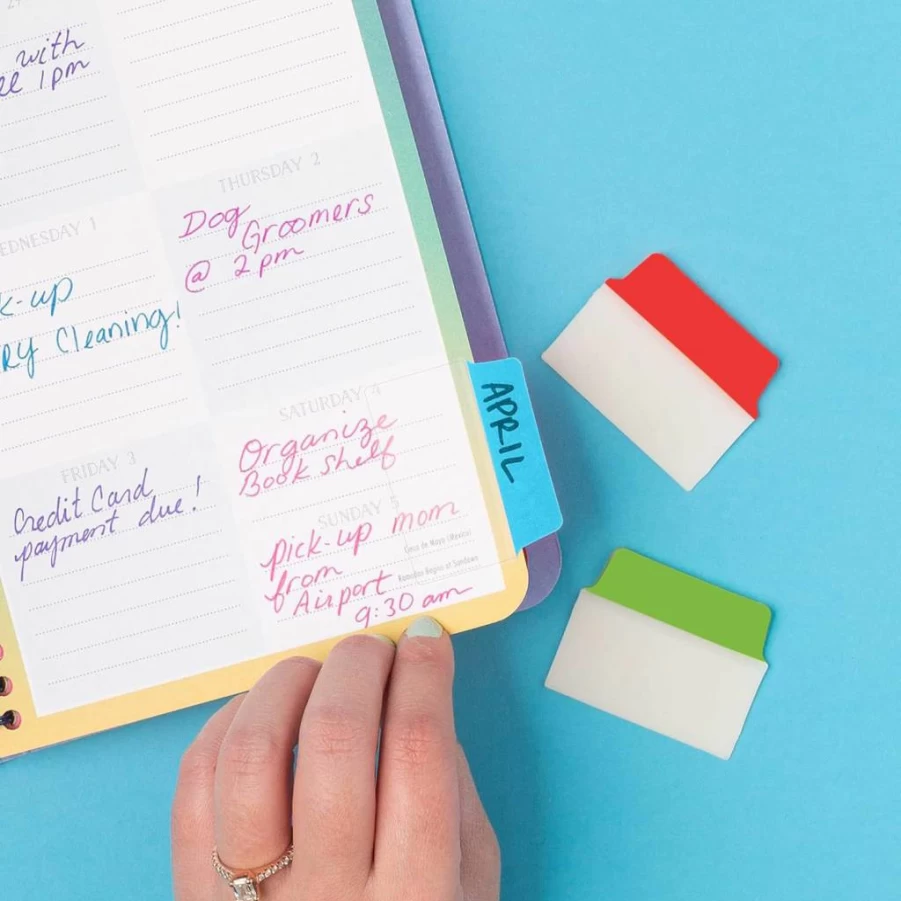 with
1pm
THURSDAY 2
Dog
Groomers
@ 2pm
WEDNESDAY 1
k-up
RY Cleaning!
SATURDAY 4
Organize
Book Shelf
FRIDAY 3
Credit Card
payment due!
SUNDAY 5
Pick-up mom
from
Airport
9:30 am
Cinco de Mayo (Mexico)
Ramadan Begins at Sundown
APRIL